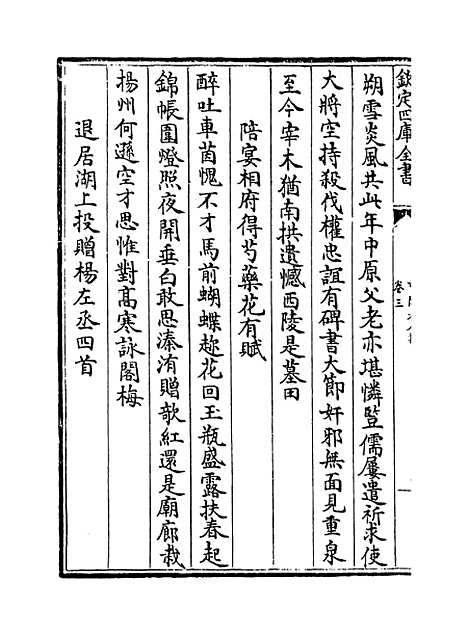 欽定四庫全書
卷三
朔雪炎風共此年中原父老亦堪憐豎儒屢遣祈求使
大將空持殺伐權忠誼有碑書大節奸邪無面見重泉
至今宰木猶南拱遺憾西陵是墓田
陪宴相府得芍藥花有賦
醉吐車茵愧不才馬前蝴蝶趂花回玉瓶盛露扶春起
錦帳圍燈照夜開垂白敢思溱洧贈歌紅還是廟廊栽
揚州何遜空才思惟對髙寒詠閣梅
退居湖上投贈楊左丞四首